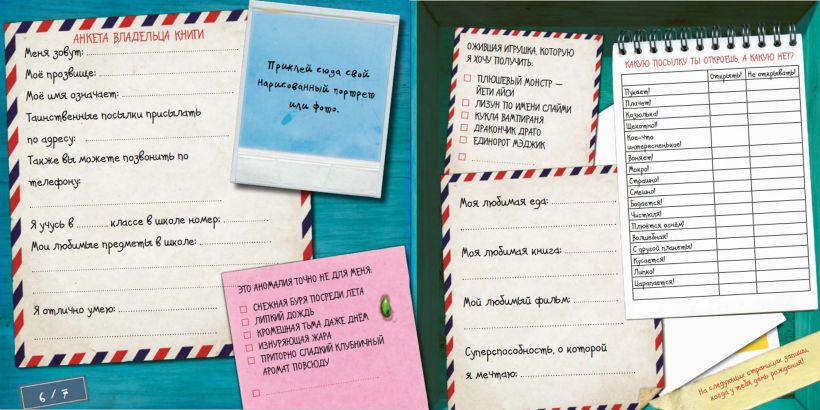 АНКЕТА ВЛАДЕЛЬЦА КНИГИ
Меня зовут:
Моё прозвище:
Моё имя означает:
Таинственные посылки присылать
по адресу:
Также вы можете позвонить по
телефону:
Я учусь в классе в школе номер:
Мои любимые предметы в школе:
Я отлично умею:
Приклей сюда свой
нарисованный портрет
или фото.
ЭТО АНОМАЛИЯ ТОЧНО НЕ ДЛЯ МЕНЯ:
СНЕЖНАЯ БУРЯ ПОСРЕДИ ЛЕТА
ЛИПКИЙ ДОЖДЬ
КРОМЕШНАЯ ТЬМА ДАЖЕ ДНЁМ
ИЗНУРЯЮЩАЯ ЖАРА
ПРИТОРНО СЛАДКИЙ КЛУБНИЧНЫЙ
АРОМАТ ПОВСЮДУ
6 / 7
ОЖИВШАЯ ИГРУШКА, КОТОРУЮ
Я ХОЧУ ПОЛУЧИТЬ:
ПЛЮШЕВЫЙ МОНСТР —
ЙЕТИ АЙСИ
ЛИЗУН ПО ИМЕНИ СЛАЙМИ
КУКЛА ВАМПИРАНЯ
ДРАКОНЧИК ДРАГО
ЕДИНОРОГ МЭДЖИК
Моя любимая еда:
Моя любимая книга:
Мой любимый фильм:
Суперспособность, о которой
я мечтаю:
КАКУЮ ПОСЫЛКУ ТЫ ОТКРОЕШЬ, А КАКУЮ НЕТ?
Открыть! Не открывать!
Пугает!
Плачет!
Козюлька!
Щекотно!
Кое-что
интересненькое!
Воняет!
Мокро!
Страшно!
Смешно!
Бодается!
Чистюля!
Плюётся огнём!
Волшебная!
С другой планеты!
Кусается!
Липко!
Царапается!
На следующих страницах запиши,
когда у тебя день рождения!